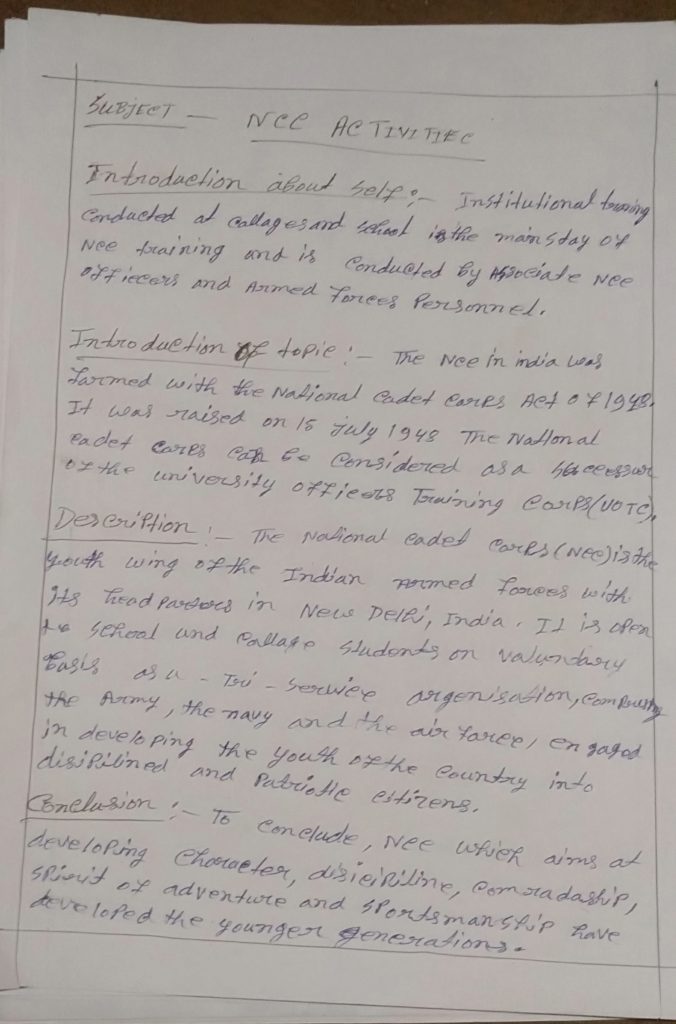 SUBJECT — NCC ACTIVITIEC
Introduction about self :- Institutional traning
Conducted at Collages and school is the mainsday of
NCC training and is Conducted by Associate NCC
officcers and Armed forces Personnel.
Introduction of topic :- The Ncc in india was
formed with the National Cadet Corps Act of 1948.
It was raised on 15 july 1948 The National
cadet corps can be Considered as a successur
of the university officers Training Corps (UOTC).
Description :- The National cadet corps (NCC) is the
youth wing of the Indian Armed forces with
its head parters in New Delhi, India. It is open
to school and Collage students on valuntary
basis as a - Tri - service organisation, Compousing
the Army, the navy and the air force, engaged
in developing the youth of the country into
disiplined and Patriotic citizens.
Conclusion :- To Conclude, NCC which aims at
developing Character, disiciplline, Comradaship,
spirit of adventure and sportsmanship have
developed the younger generations.